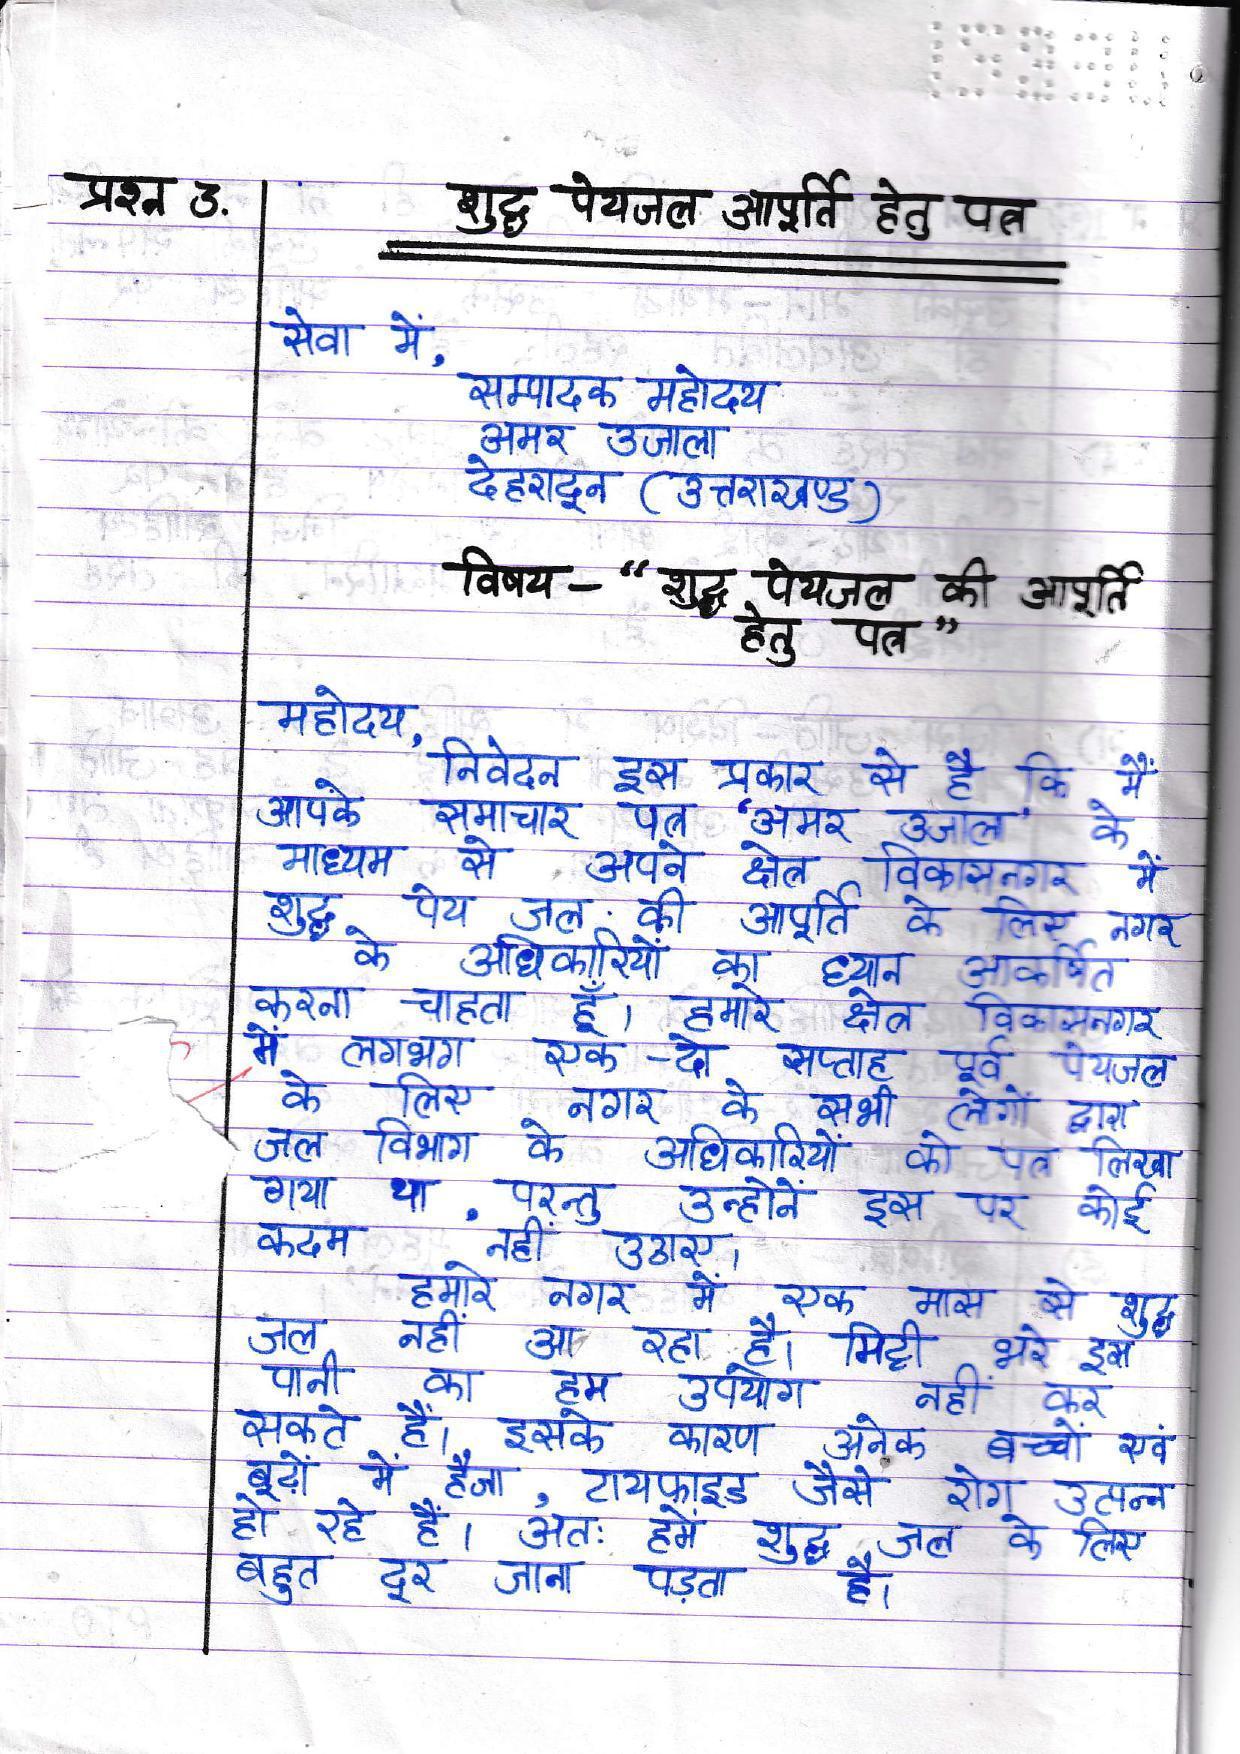 प्रश्न 3.
शुद्ध पेयजल आपूर्ति हेतु पत्र
सेवा में,
सम्पादक महोदय
अमर उजाला
देहरादून (उत्तराखण्ड)
विषय – “शुद्ध पेयजल की आपूर्ति
हेतु पत्र”
महोदय,
निवेदन इस प्रकार से है कि मैं
आपके समाचार पत्र ‘अमर उजाल’ के
माध्यम से अपने क्षेत्र विकासनगर में
शुद्ध पेय जल की आपूर्ति के लिए नगर
के अधिकारियों का ध्यान आकर्षित
करना चाहता हूँ। हमारे क्षेत्र विकासनगर
में लगभग एक-दो सप्ताह पूर्व पेयजल
के लिए नगर के सभी लोगों द्वारा
जल विभाग के अधिकारियों को पत्र लिखा
गया था, परन्तु उन्होनें इस पर कोई
कदम नहीं उठाए।
हमारे नगर में एक मास से शुद्ध
जल नहीं आ रहा है। मिट्टी भरे इस
पानी का हम उपयोग नहीं कर
सकते हैं। इसके कारण अनेक बच्चों एवं
बूढ़ों में हैजा, टायफाइड जैसे रोग उत्पन्न
हो रहे हैं। अतः हमें शुद्ध जल के लिए
बहुत दूर जाना पड़ता है।